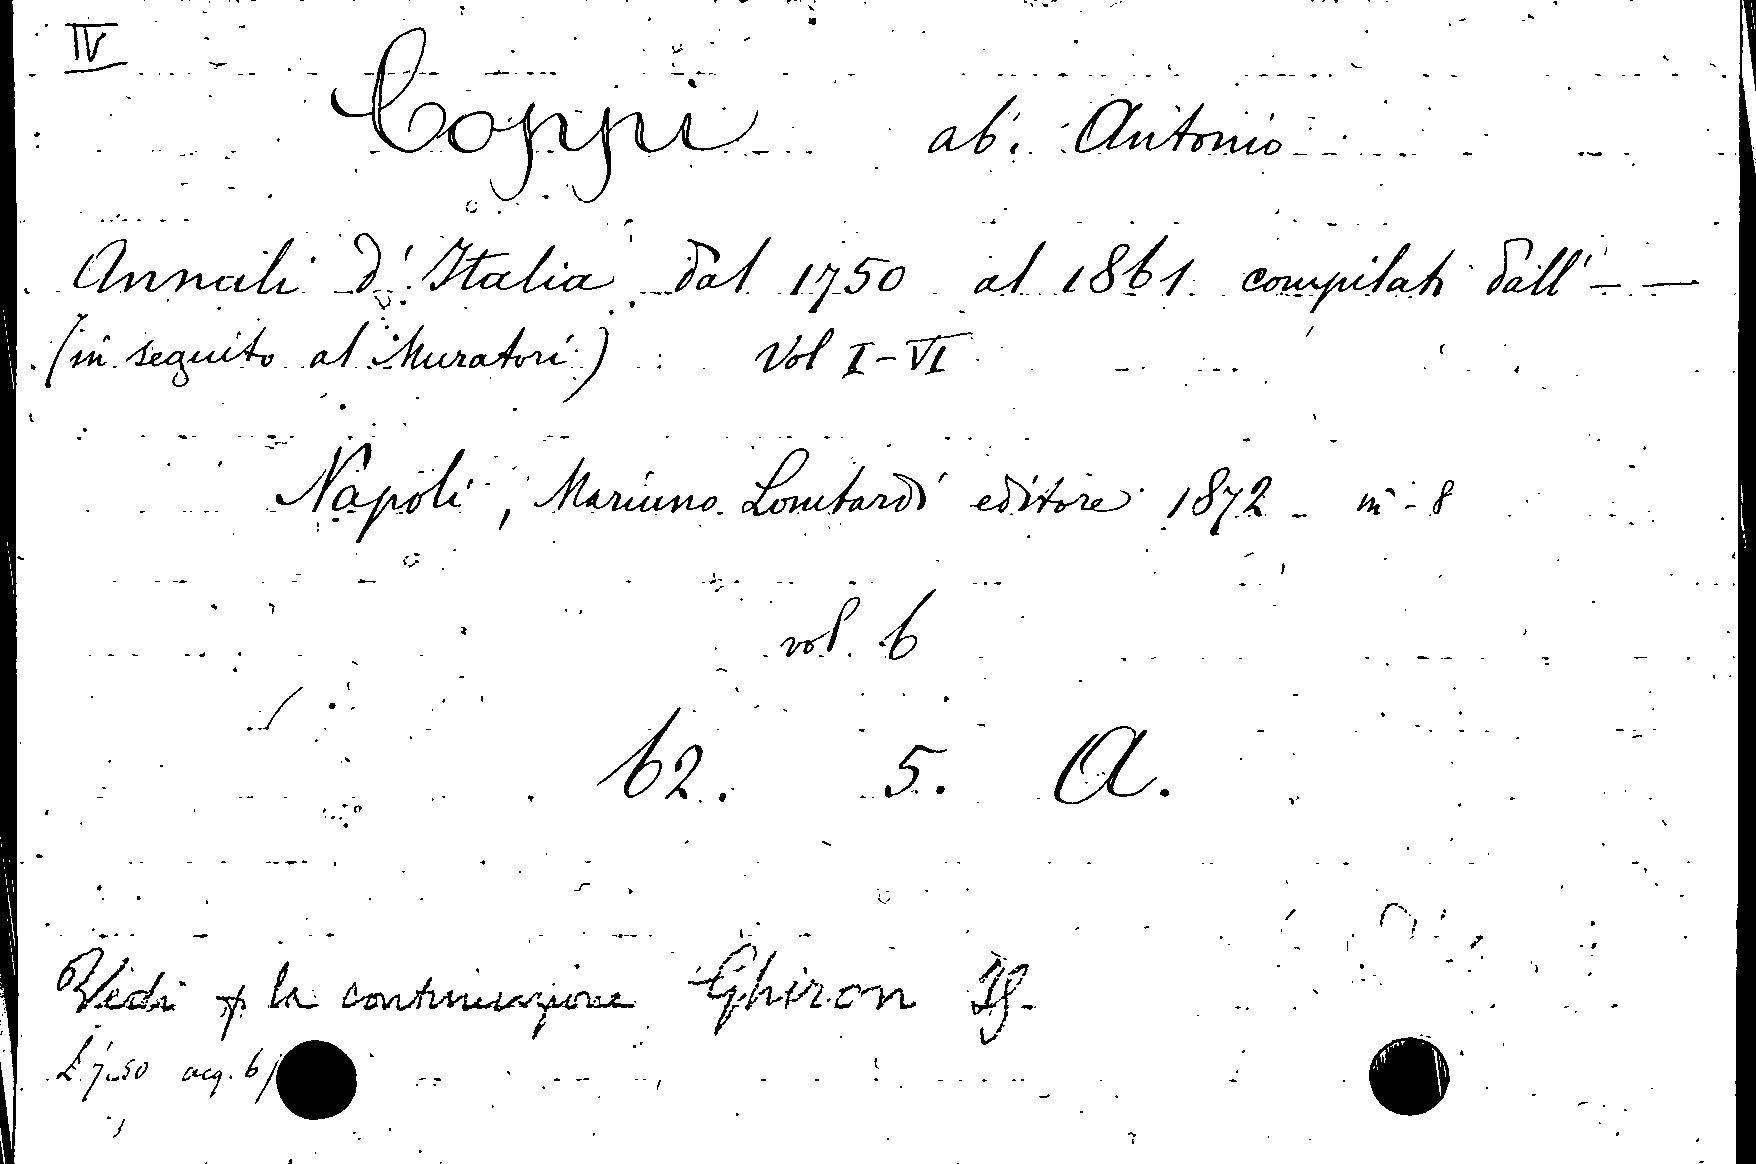 IV
Coppi ab. Antonio
Annali d'Italia dal 1750 al 1861 compilati dall' — —
(in seguito al Muratori) Vol I-VI
Napoli, Mariano Lombardi editore 1872 - in-8
vol. 6
62. 5. A.
Vedi p. la continuazione Ghiron Is.
L 7.50 acq. 6/